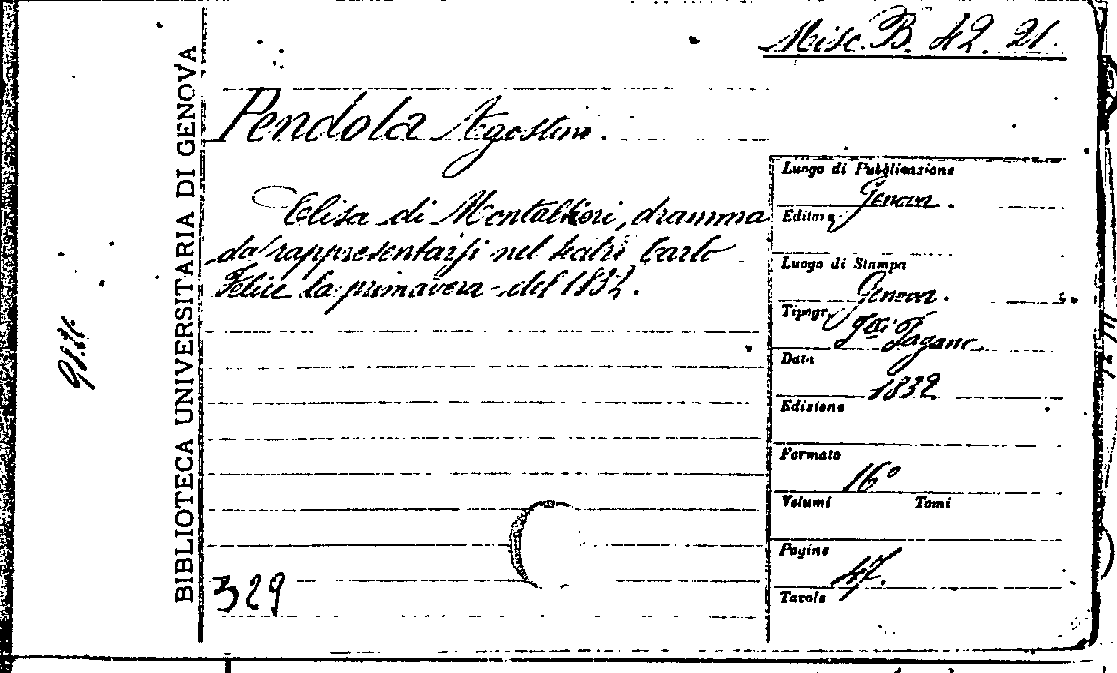 Misc. B. 42. 21.
BIBLIOTECA UNIVERSITARIA DI GENOVA
Pendola Agostino.
Elisa di Montaltieri, dramma
da rappresentarsi nel teatro Carlo
Felice la primavera del 1832.
329
Luogo di Pubblicazione
Genova.
Editore
Luogo di Stampa
Genova.
Tipogr. Flli Pagano
Data
1832
Edizione
Formato
16°
Volumi Tomi
Pagine
47.
Tavole